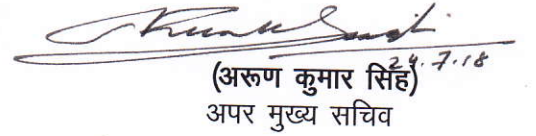 24.7.18
(अरूण कुमार सिंह)
अपर मुख्य सचिव